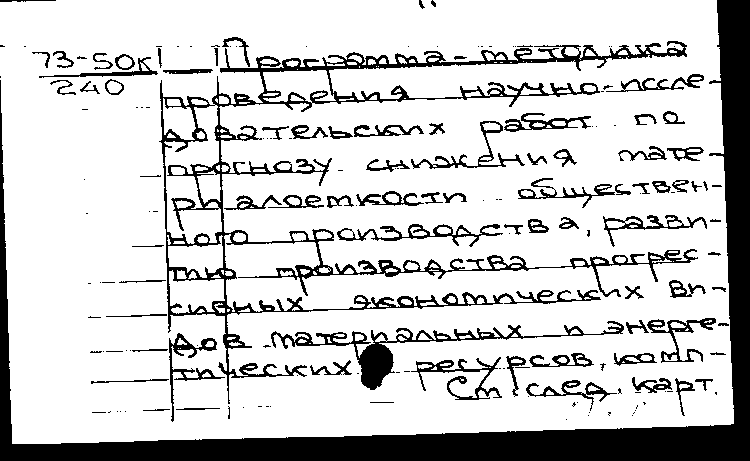 73-50к Программа-методика
240 проведения научно-иссле-
довательских работ по
прогнозу снижения мате-
риалоемкости обществен-
ного производства, разви-
тию производства прогрес-
сивных экономических ви-
дов материальных и энерге-
тических ресурсов, комп-
См. след. карт.